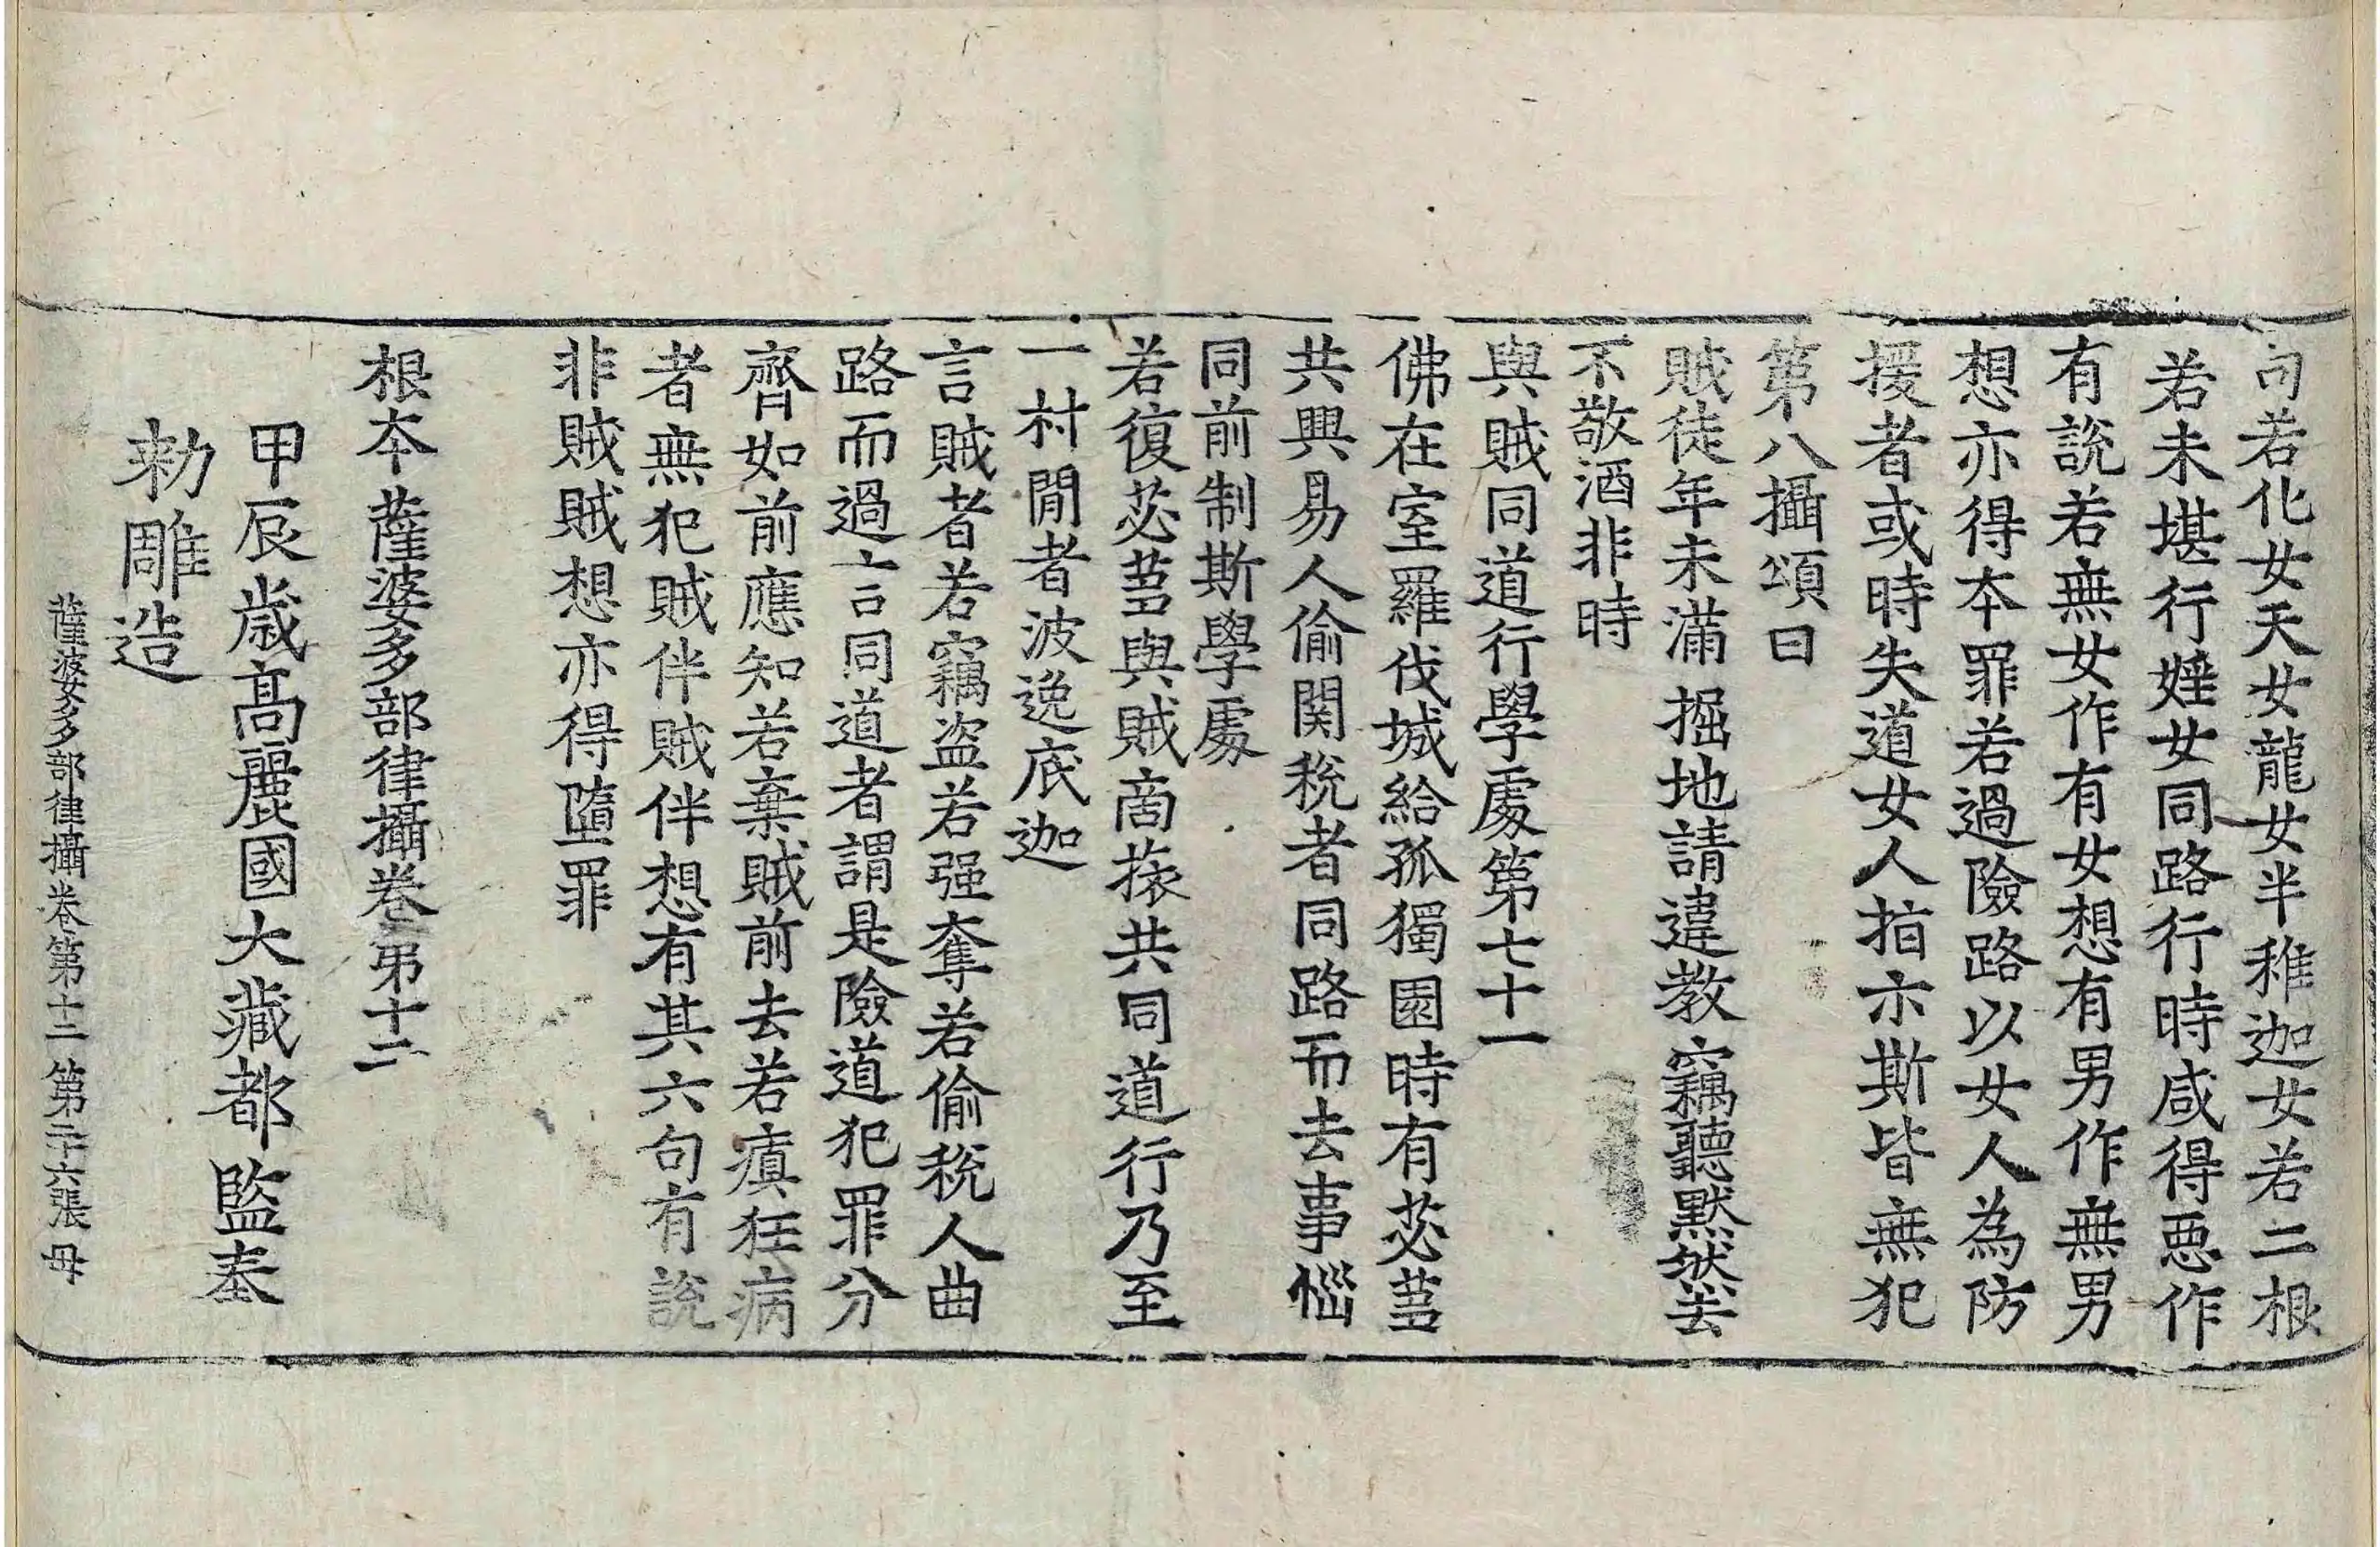 句若化女天女龍女半稚迦女若二根
若未堪行婬女同路行時咸得惡作
有說若無女作有女想有男作無男
想亦得本罪若過險路以女人為防
援者或時失道女人指示斯皆無犯
第八攝頌曰
賊徒年未滿 掘地請違教 竊聽默然去
不敬酒非時
與賊同道行學處第七十一
佛在室羅伐城給孤獨園時有苾芻
共興易人偷関稅者同路而去事惱
同前制斯學處
若復苾芻與賊商旅共同道行乃至
一村閒者波逸底迦
言賊者若竊盜若强奪若偷稅人曲
路而過言同道者謂是險道犯罪分
齊如前應知若棄賊前去若瘨狂病
者無犯賊伴賊伴想有其六句有說
非賊賊想亦得墮罪
根本薩婆多部律攝卷第十二
甲辰歲高麗國大藏都監奉
勅雕造
薩婆多部律攝卷第十二 第二十六張 毋